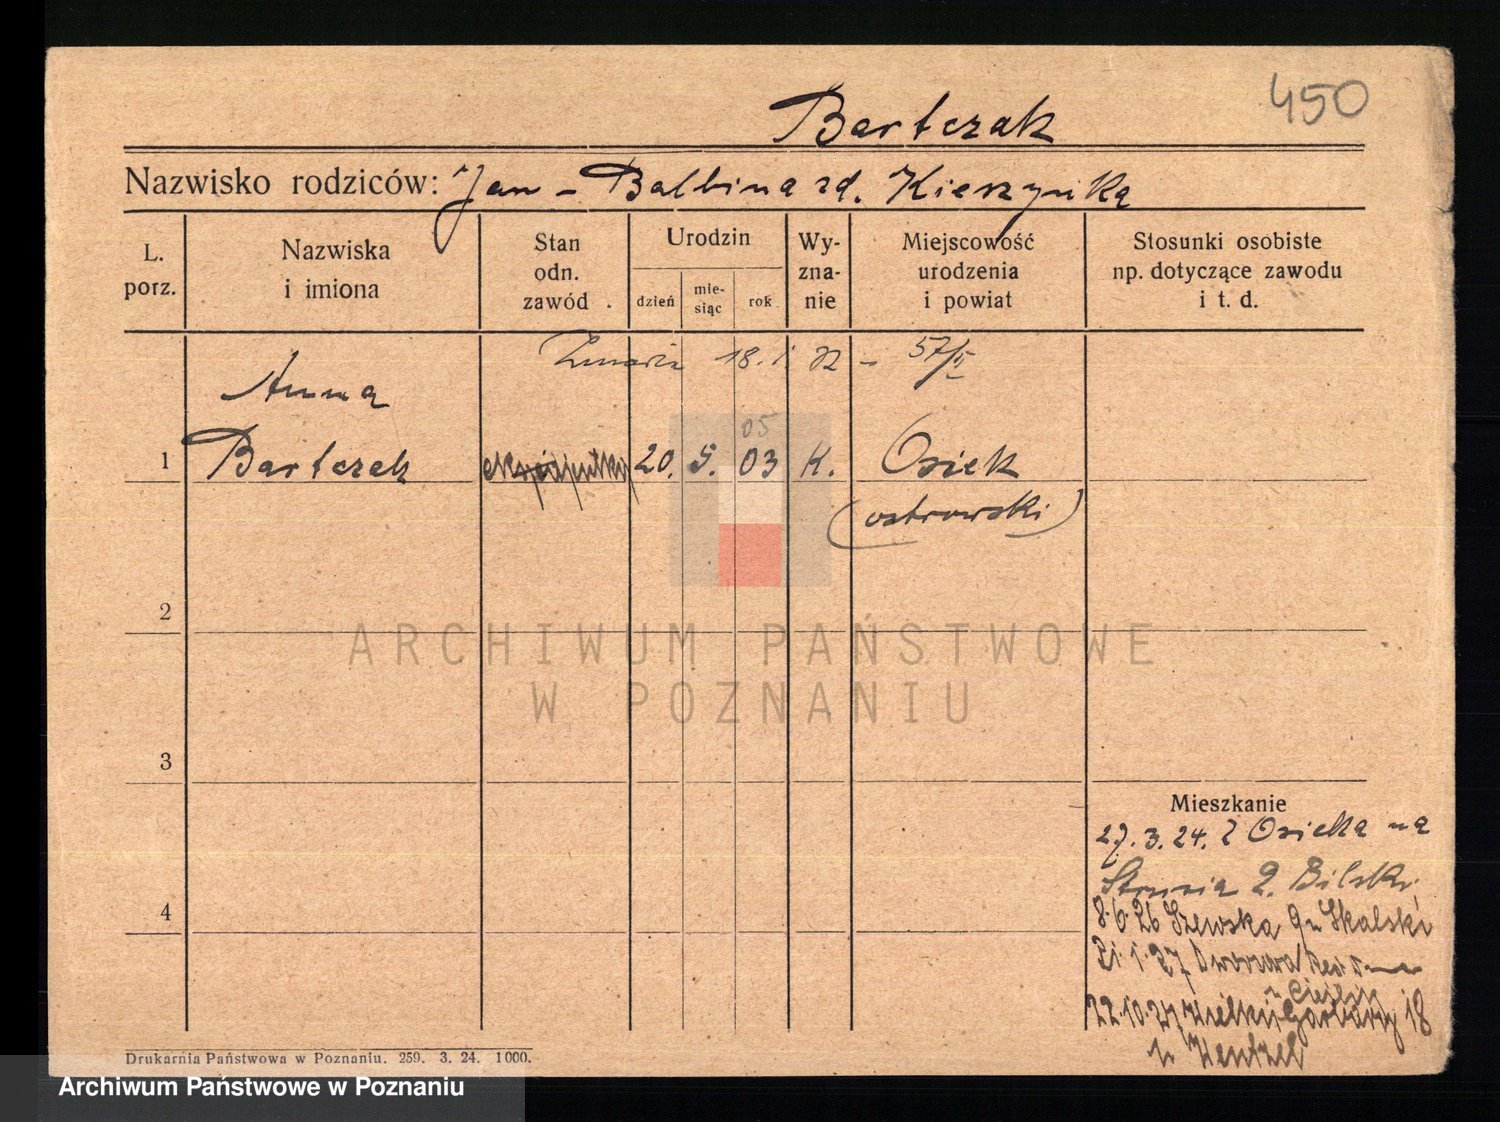 450
Bartczak
Nazwisko rodziców: Jan – Balbina zd. Kieszyńka
L. porz.
Nazwiska i imiona
Stan odn. zawód
Urodzin
dzień
mie-siąc
rok
Wy-zna-nie
Miejscowość urodzenia i powiat
Stosunki osobiste np. dotyczące zawodu i t. d.
Zmarła 18. 1. 32 – 57/II
Anna
05
1 Bartczak 20. 5. 03 K. Osiek
(ostrowski)
2
ARCHIWUM PAŃSTWOWE
W POZNANIU
3
Mieszkanie
27. 3. 24. z Osieka na
Strusia 2. Bilski
4
8.6.26 Szewska 9 u Skalski
21.1.27 Dworzowa
22.10.27 Wielkie Garbary 18
u Wentzel
Drukarnia Państwowa w Poznaniu. 259. 3. 24. 1000.
Archiwum Państwowe w Poznaniu